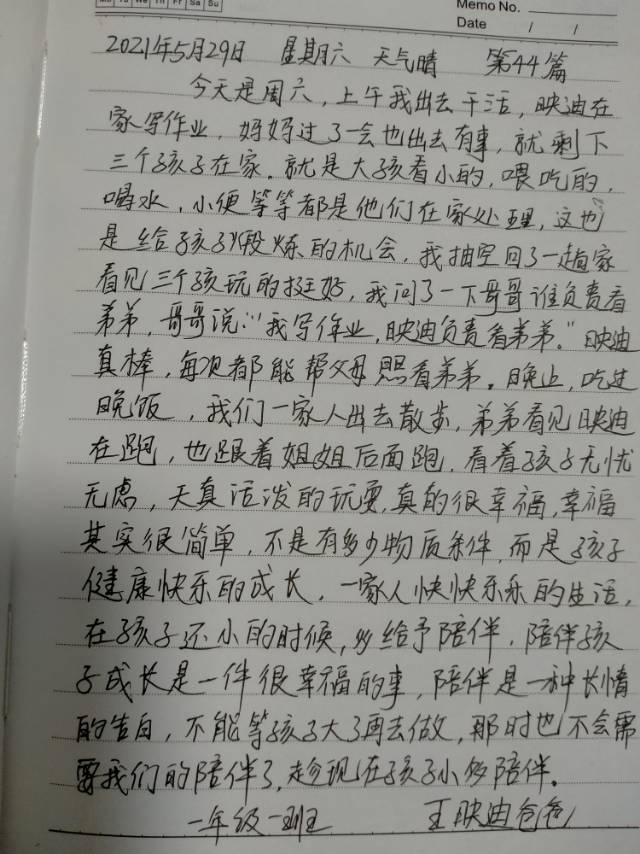 Mo Tu We Th Fr Sa Su
Memo No.
Date / /
2021年5月29日 星期六 天气晴 第44篇
今天是周六，上午我出去干活，映迪在
家写作业，妈妈过了一会也出去有事，就剩下
三个孩子在家。就是大孩看小的，喂吃的，
喝水，小便等等都是他们在家处理，这也
是给孩子锻炼的机会，我抽空回了一趟家
看见三个孩玩的挺好，我问了一下哥哥谁负责看
弟弟，哥哥说：“我写作业，映迪负责看弟弟。”映迪
真棒，每次都能帮父母照看弟弟。晚上，吃过
晚饭，我们一家人出去散步，弟弟看见映迪
在跑，也跟着姐姐后面跑，看着孩子无忧
无虑，天真活泼的玩耍，真的很幸福，幸福
其实很简单，不是有多少物质条件，而是孩子
健康快乐的成长，一家人快快乐乐的生活，
在孩子还小的时候，多给予陪伴，陪伴孩
子成长是一件很幸福的事，陪伴是一种长情
的告白，不能等孩子大了再去做，那时也不会需
要我们的陪伴了，趁现在孩子小多陪伴。
一年级一班 王映迪爸爸